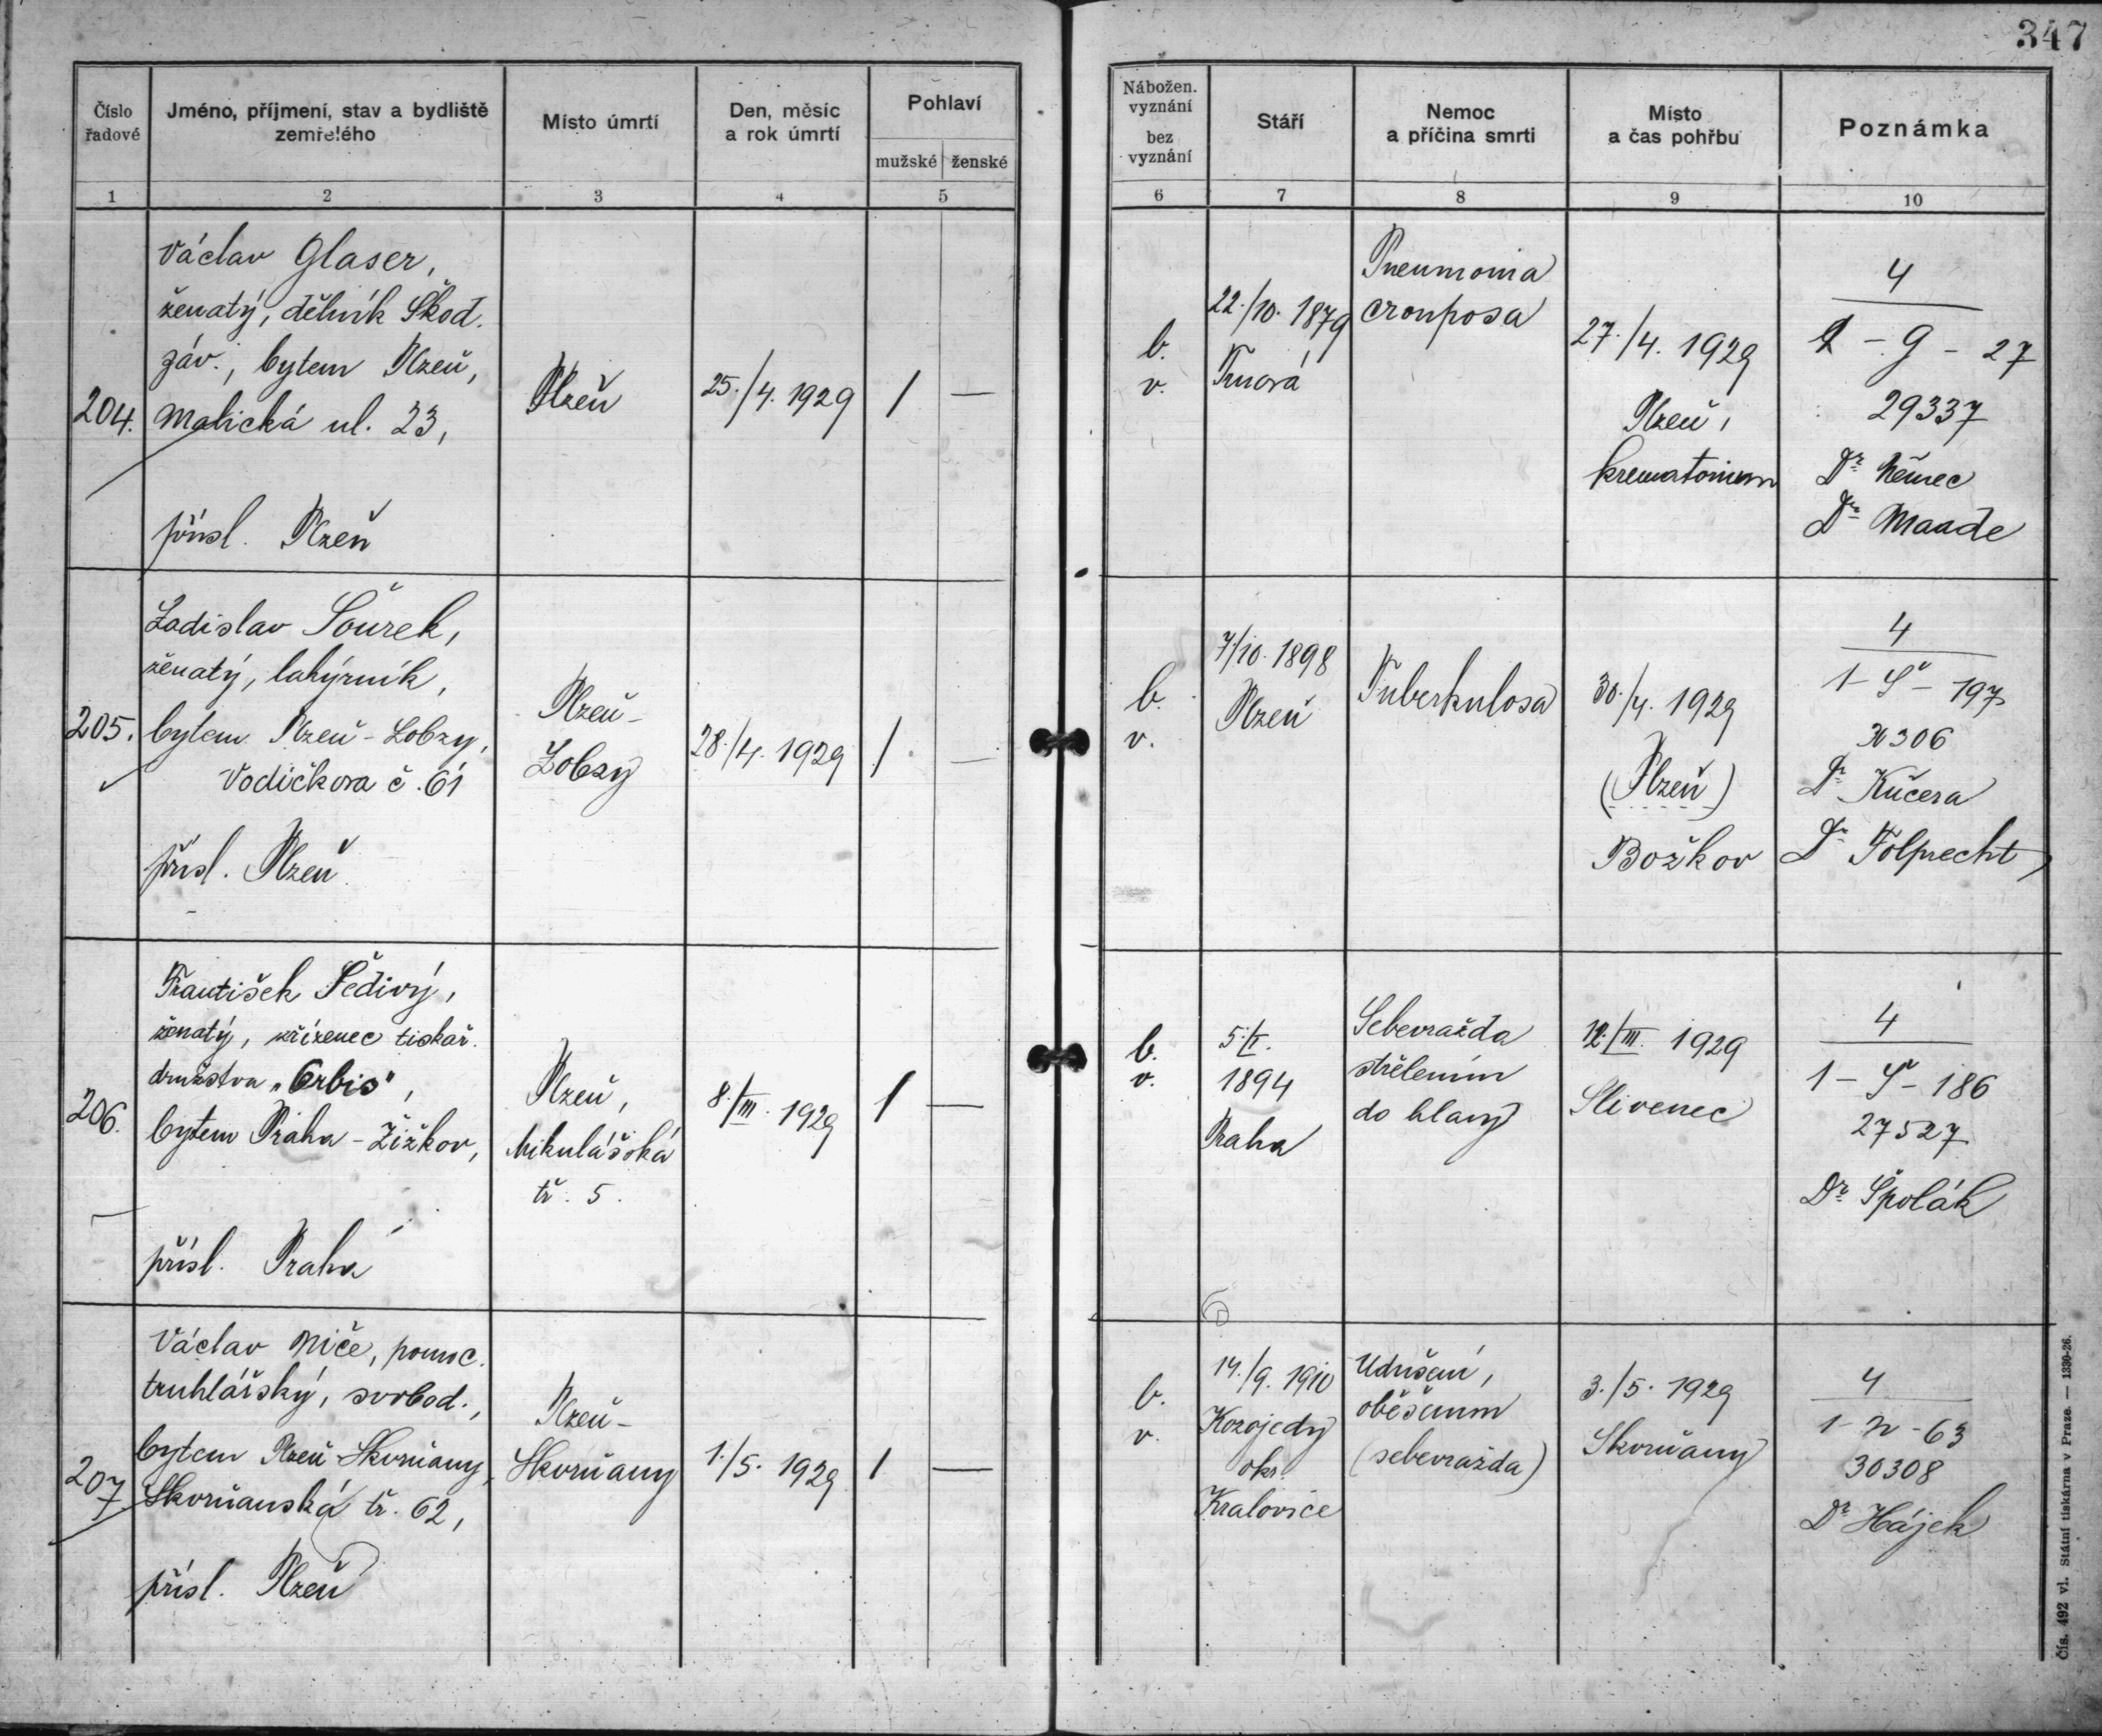 347
Číslo řadové
Jméno, příjmení, stav a bydliště zemřelého
Místo úmrtí
Den, měsíc a rok úmrtí
Pohlaví
mužské ženské
Nábožen. vyznání
bez vyznání
Stáří
Nemoc a příčina smrti
Místo a čas pohřbu
Poznámka
1 2 3 4 5 6 7 8 9 10
204.
Václav Glaser,
ženatý, dělník Škod.
záv., bytem Plzeň,
Malická ul. 23,
přísl. Plzeň
Plzeň
25./4. 1929
1 —
b.
v.
22./10. 1879
Trnová
Pneumonia
crouposa
27./4. 1929
Plzeň,
krematorium
4
1 - G - 27
29337
Dr Němec
Dr Maade
205.
Ladislav Šourek,
ženatý, lahýrník,
bytem Plzeň - Lobzy,
Vodičkova č. 61
přísl. Plzeň
Plzeň -
Lobzy
28./4. 1929
1 —
b.
v.
7/10. 1898
Plzeň
Tuberkulosa
30./4. 1929
(Plzeň)
Božkov
4
1 - Š - 197
30306
Dr Kučera
Dr Folprecht
206.
František Šedivý,
ženatý, zřízenec tiskař.
družstva „Orbis",
bytem Praha - Žižkov,
přísl. Praha
Plzeň,
Mikulášská
tř. 5.
8./III. 1929
1 —
b.
v.
5./I.
1894
Praha
Sebevražda
střelením
do hlavy
12./III. 1929
Slivenec
4
1 - Š - 186
27527
Dr Špolák
207
Václav Niče, pomoc.
truhlářský, svobod.,
bytem Plzeň - Skvrňany,
Skvrňanská tř. 62,
přísl. Plzeň
Plzeň -
Skvrňany
1./5. 1929
1 —
b.
v.
14./9. 1910
Kozojedy
okr.
Kralovice
Udušení,
oběšením
(sebevražda)
3./5. 1929
Skvrňany
4
1 - N - 63
30308
Dr Hájek
Čís. 492 vl. Státní tiskárna v Praze. — 1330-26.